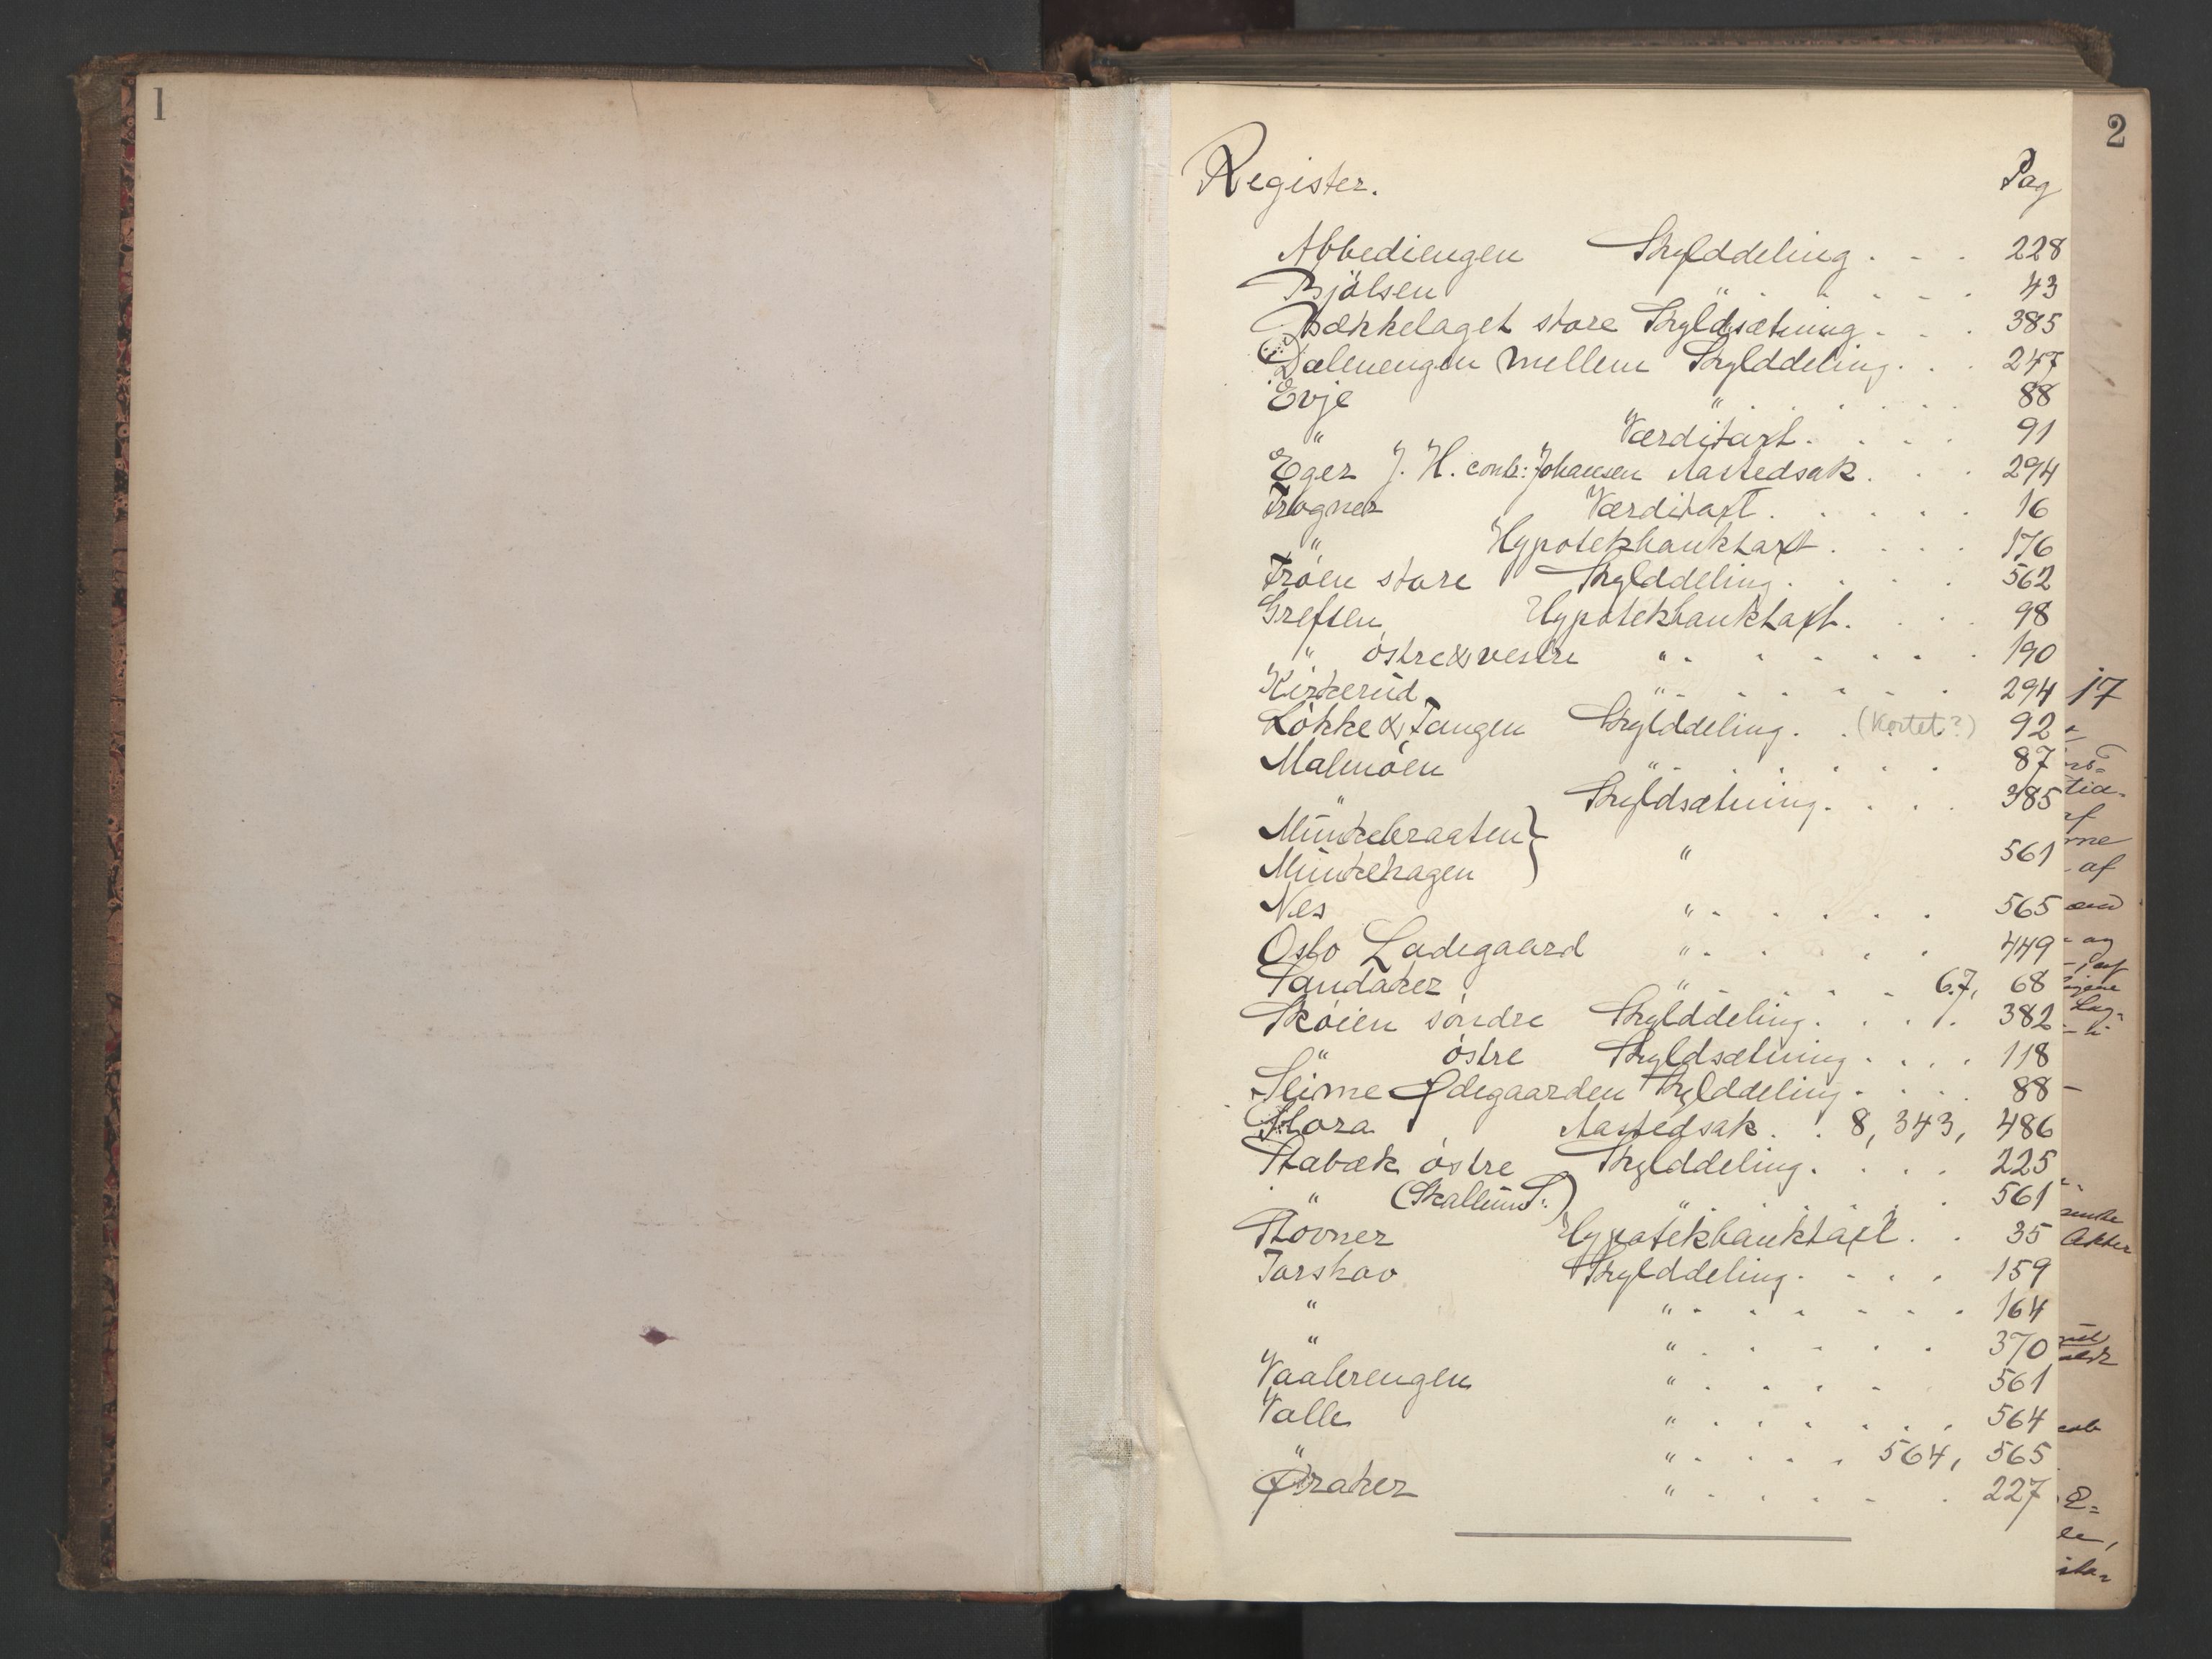 1
2
Register. Pag
Abbediengen Skylddeling . . . 228
Bjölsen " . . . . . 43
Bækkelaget store Skyldsætning . . . 385
Dælenengen mellem Skylddeling . . . 247
Evje " . . . . . . 88
" Værditaxt . . . . 91
Eger J. H. contr: Johansen Aastedsak . . . 294
Frogner Værditaxt . . . . . 16
" Hypotekbanktaxt . . . . 176
Fröen store Skylddeling . . . . 562
Grefsen Hypotekbanktaxt . . . . 98
" östre & vestre " . . . . . . 190
Kirkerud " . . . . . . 294
17
Lökke & Tangen Skylddeling . . (Kortet?) 92
Malmöen " . . . . . . 87
" Skyldsætning . . . . 385
Munkebraaten }
Munkehagen } " 561
Nes " . . . . . 565
Oslo Ladegaard " . . . . . 449
Sandaker " . . . . 67, 68
Skøien söndre Skylddeling . . . . 382
" östre Skyldsætning . . . . 118
Slime Ødegaarden Skylddeling . . . . 88
Slora Aastedsak . . 8, 343, 486
Stabæk östre Skylddeling . . . . 225
" (Skallum S:) " . . . . . 561
Stovner Hypotekbanktaxt . . 35
Akter
Torshov Skylddeling . . . . 159
" " . . . . . . 164
" " . . . . . 370
Vaalerengen " . . . . 561
Valle " . . . . . . 564
" " . . . . 564, 565
Øraker " . . . . . 227